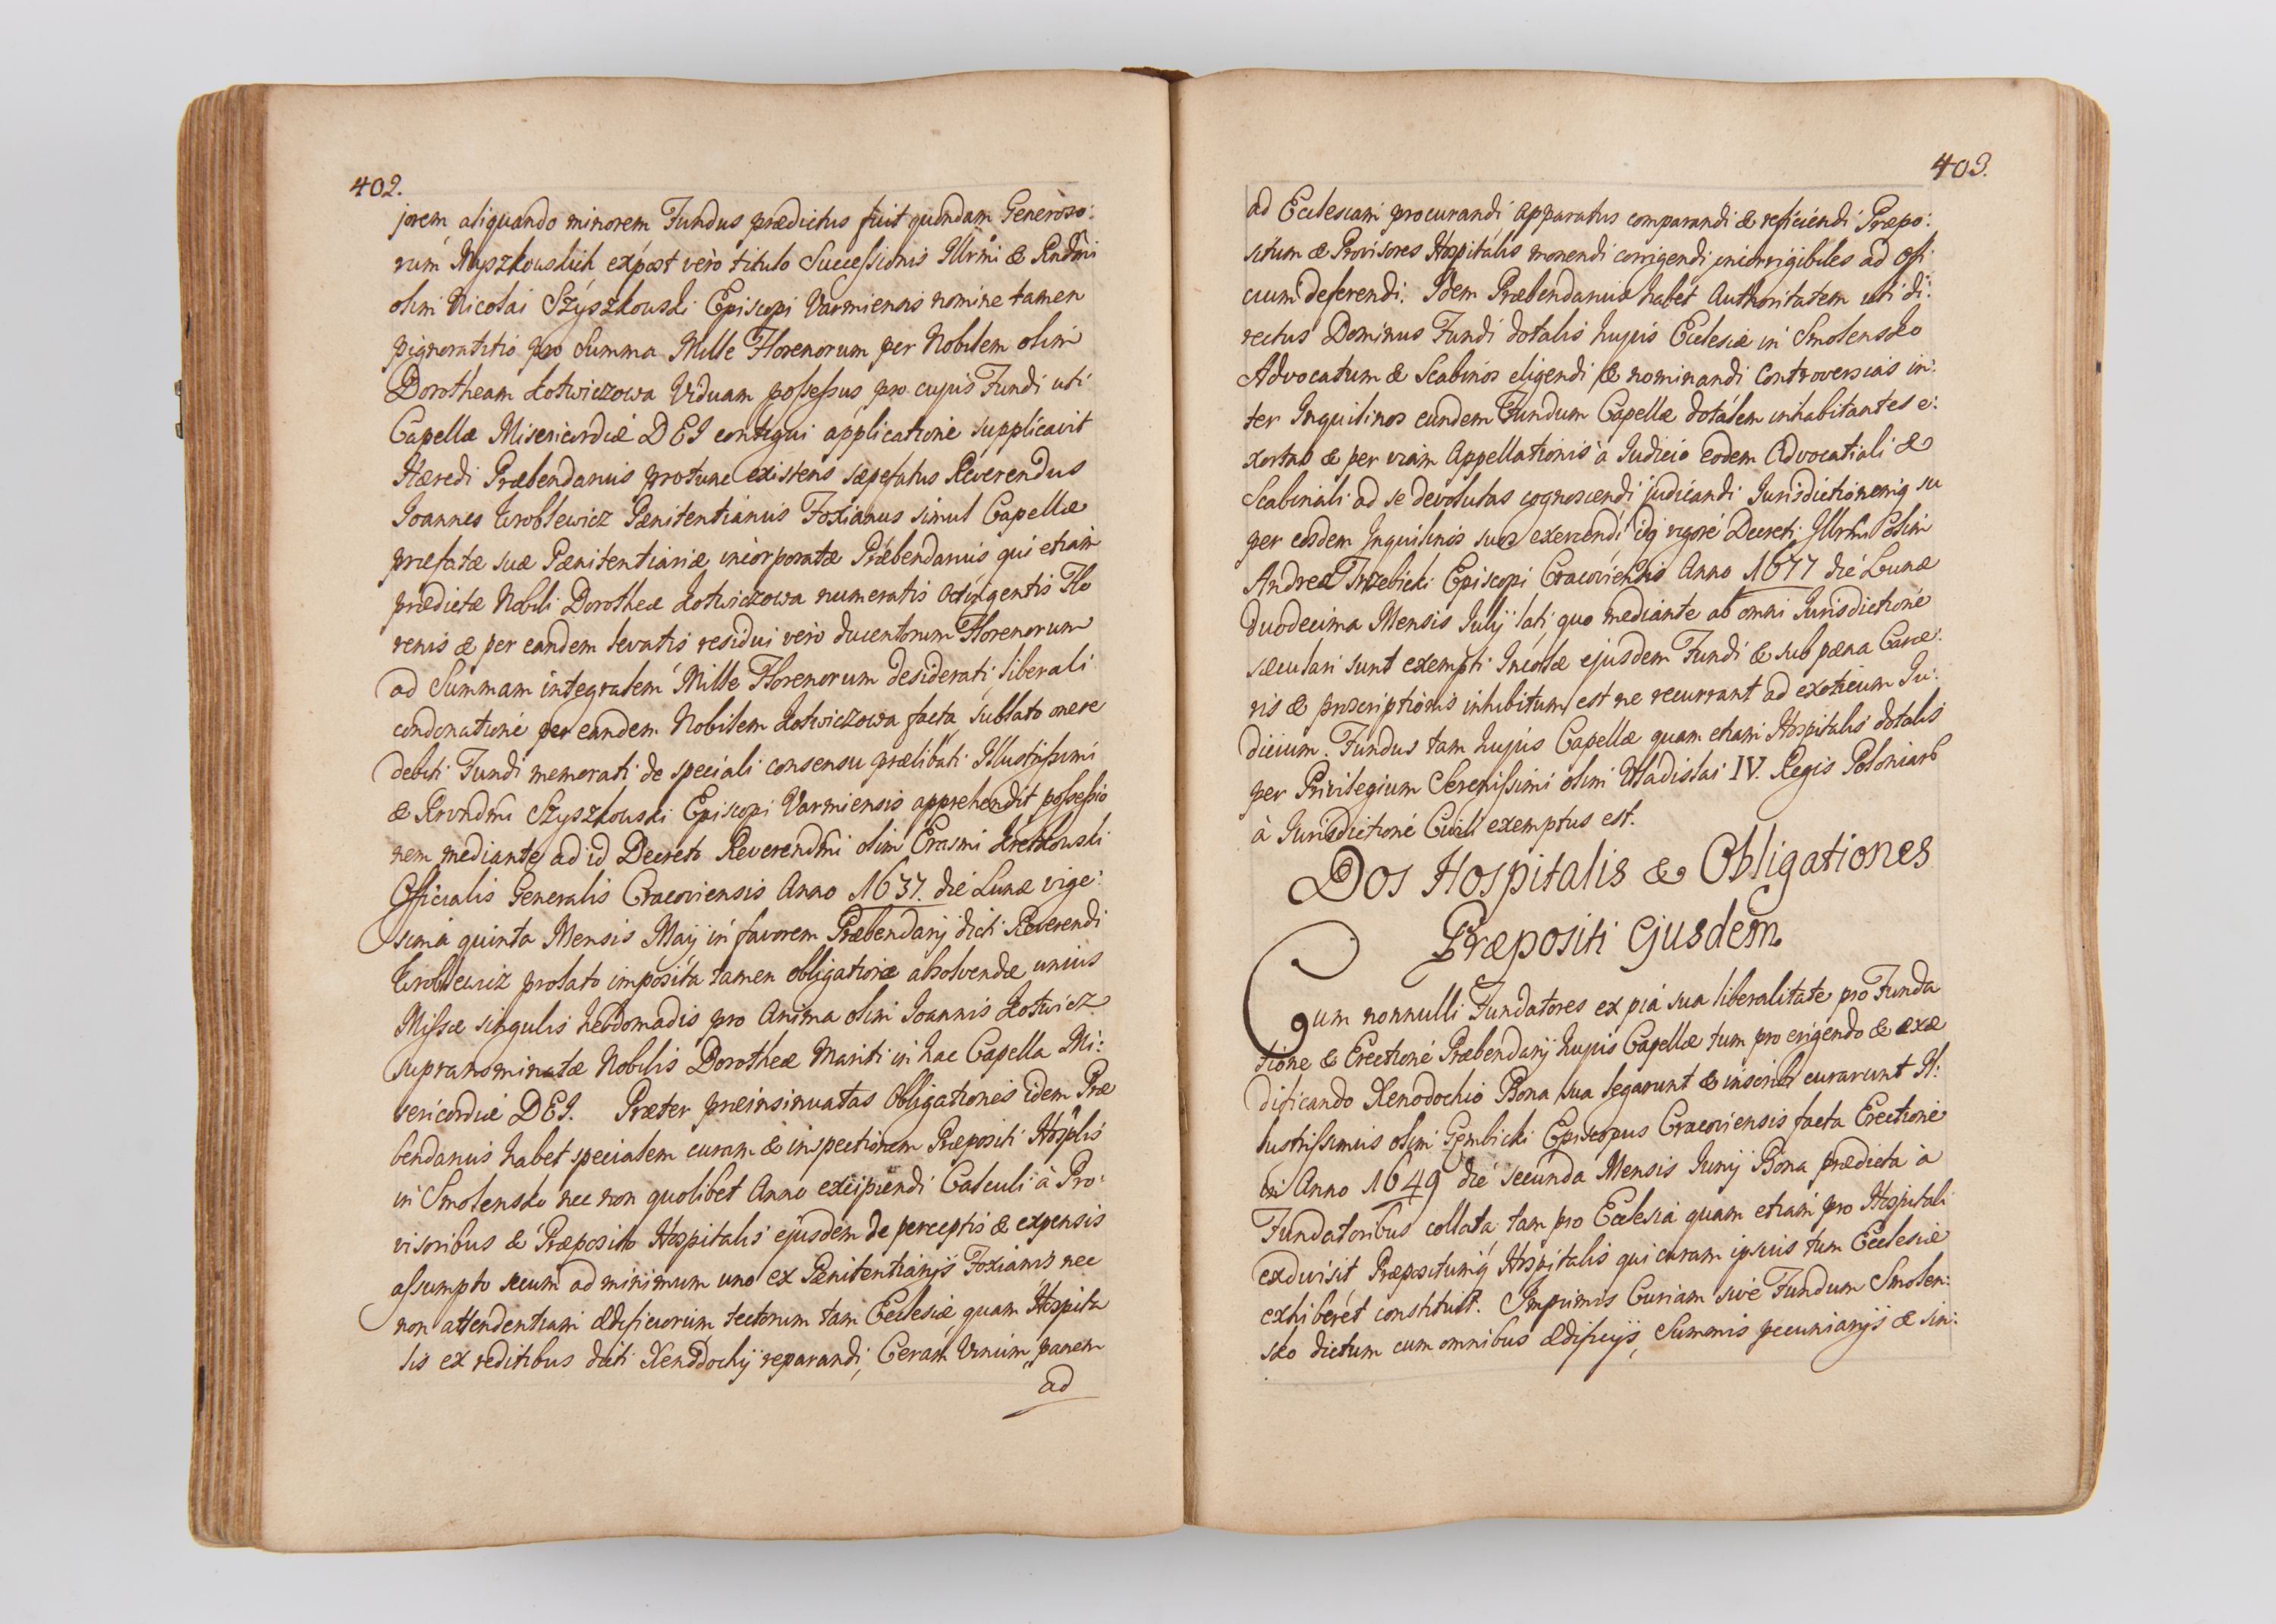 402.
jorem aliquando minorem Fundus prædictus fuit quondam Generoso:
rum Myszkouskich expost verò titulo Successionis Illrmi & Rndmi
olim Nicolai Szyszkouski Episcopi Varmiensis nomine tamen
pignoratitio pro Summa Mille Florenorum per Nobilem olim
Dorotheam Lotwiczowa Viduam possessus pro cujus Fundi uti
Capellæ Misericordiæ DEI contigui applicatione supplicavit
Hæredi Præbendarius protunc existens sæpefatus Reverendus
Joannes Wroblewicz Pænitentiarius Foxianus simul Capellæ
præfatæ suæ Pænitentiariæ incorporatæ Præbendarius qui etiam
prædictæ Nobili Dorotheæ Lotwiczowa numeratis octingentis Flo
renis & per eandem levatis residui verò ducentorum Florenorum
ad Summam integralem Mille Florenorum desiderati liberali
condonatione per eandem Nobilem Lotwiczowa facta sublato onere
debiti Fundi memorati de speciali consensu prælibati Illustrissimi
& Rvndmi Szyszkouski Episcopi Varmiensis apprehendit possessio
nem mediante ad id Decreto Reverendmi olim Erasmi Kretkouski
Officialis Generalis Cracoviensis Anno 1637. die Lunæ vige:
sima quinta Mensis Maij in favorem Præbendarij dicti Reverendi
Wroblewicz prolato imposita tamen obligatione absolvendæ unius
Missæ singulis hebdomadis pro Anima olim Joannis Lotwicz
supranominatæ Nobilis Dorotheæ Mariti in hac Capella Mi:
sericordiæ DEI. Præter præinsinuatas Obligationes idem Præ
bendarius habet specialem curam & inspectionem Præpositi Hosplis
in Smolensko nec non quolibet Anno excipiendi Calculi à Pro:
visoribus & Præposito Hospitalis ejusdem de perceptis & expensis
assumpto secum ad minimum uno ex Pænitentiarijs Foxianis nec
non attendentiam ædificiorum tectorum tam Ecclesiæ quam Hospita
lis ex reditibus dicti Xenodochij reparandi, Ceram Vinum panem
ad
403.
ad Ecclesiam procurandi apparatus comparandi & reficiendi Præpo:
situm & Provisores Hospitalis monendi corrigendi incorrigibiles ad Offi:
cium deferendi. Idem Præbendarius habet Authoritatem uti di:
rectus Dominus Fundi dotalis hujus Ecclesiæ in Smolensko
Advocatum & Scabinos eligendi & nominandi Controversias in:
ter Inquilinos eundem Fundum Capellæ dotalem inhabitantes e:
xortas & per viam Appellationis à Judicio eodem Advocatiali &
Scabinali ad se devolutas cognoscendi judicandi Jurisdictionemq su
per eosdem Inquilinos suos exercendi idq vigore Decreti Illrmi olim
Andreæ Trzebicki Episcopi Cracoviensis Anno 1677 die Lunæ
duodecima Mensis Julij lati quo mediante ab omni Jurisdictione
sæculari sunt exempti Incolæ ejusdem Fundi & sub pæna Carce:
ris & proscriptionis inhibitum est ne recurrant ad exoticum Ju:
dicium. Fundus tam hujus Capellæ quam etiam Hospitalis dotalis
per Privilegium Serenissimi olim Uladislai IV. Regis Poloniarꝝ
à Jurisdictione Civili exemptus est.
Dos Hospitalis & Obligationes
Præpositi Ejusdem.
Cum nonnulli Fundatores ex pia sua liberalitate pro Funda
tione & Erectione Præbendarij hujus Capellæ tum pro erigendo & exæ
dificando Xenodochio Bona sua legarunt & inscribi curarunt Il:
lustrissimus olim Gembicki Episcopus Cracoviensis facta Erectione
in Anno 1649 die secunda Mensis Junij Bona prædicta à
Fundatoribus collata tam pro Ecclesia quam etiam pro Hospitali
exdivisit Præpositumq́ Hospitalis qui curam ipsius tum Ecclesiæ
exhiberet constituit. Imprimis Curiam sive Fundum Smolen:
sko dictum cum omnibus ædificijs, Summis pecuniarijs & sin: